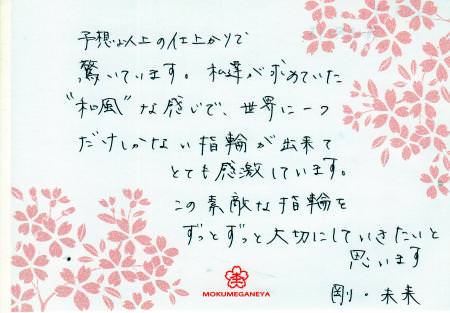 予想以上の仕上がりで
驚いています。私達が求めていた
“和風”な感じで、世界に一つ
だけしかない指輪が出来て
とても感激しています。
この素敵な指輪を
ずっとずっと大切にしていきたいと
思います
剛・未来
MOKUMEGANEYA